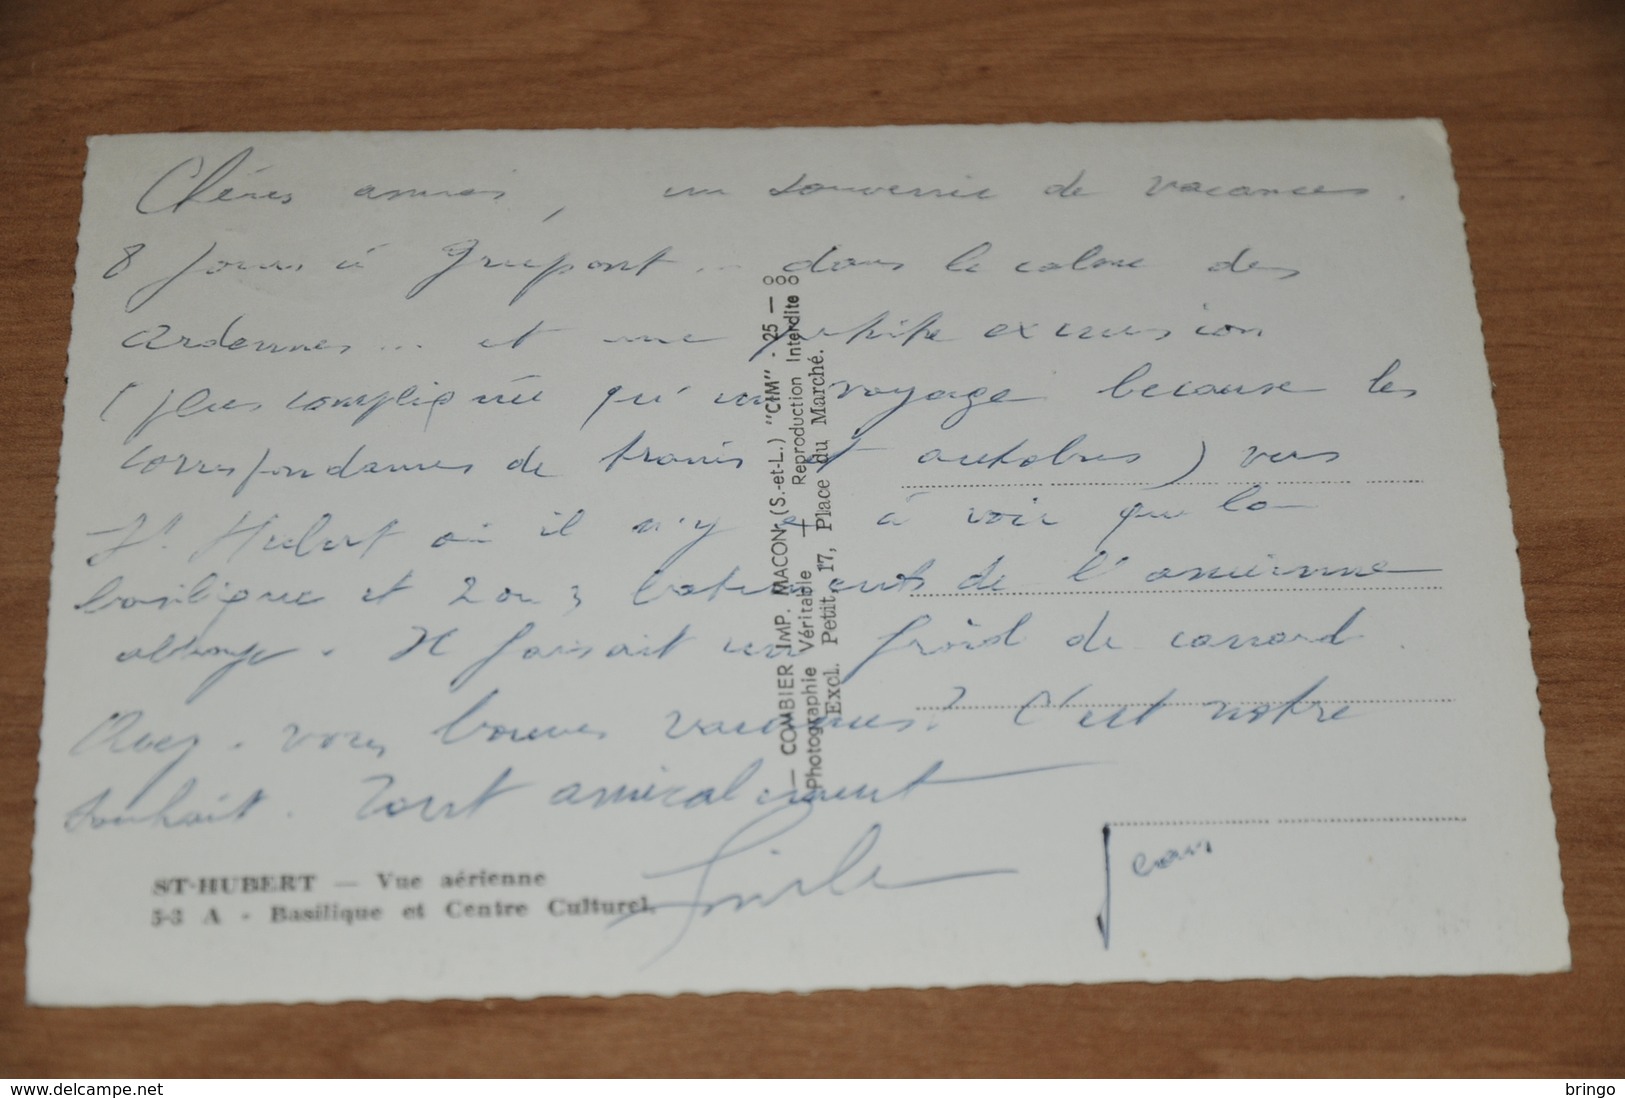 Chères amies, un souvenir de vacances.
8 jours à Grupont ... dans le calme des
Ardennes ... et une petite excursion
(plus compliquée qu'un voyage because les
correspondances de trains et autobus) vers
St. Hubert où il n'y a à voir que la
basilique et 2 ou 3 batiments de l'ancienne
abbaye. Il faisait un froid de canard.
Avez-vous bonnes vacances? C'est notre
souhait. Tout amicalement
ST-HUBERT — Vue aérienne
5-3 A - Basilique et Centre Culturel.
— COMBIER IMP. MACON (S.-et-L.) "CIM" - 25 —
Photographie Véritable — Reproduction Interdite
Excl. Petit, 17, Place du Marché.
www.delcampe.net
bringo